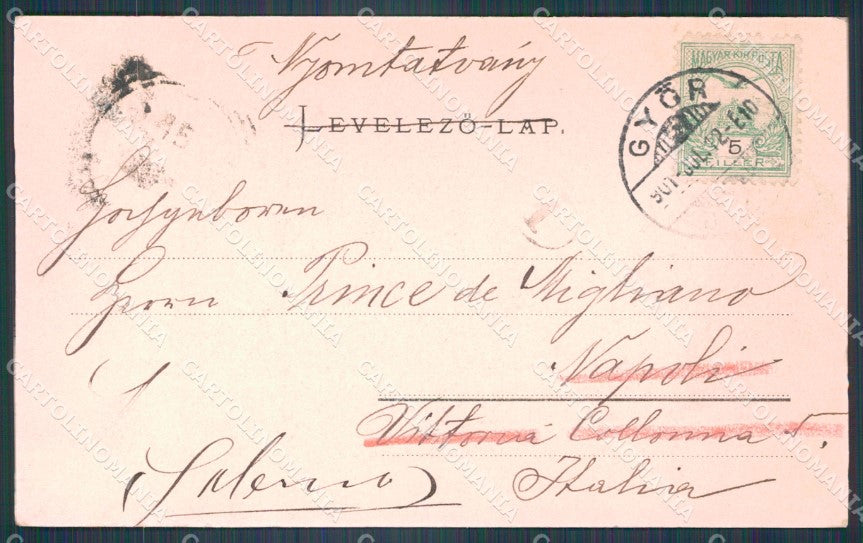 Nyomtatvány
LEVELEZŐ-LAP.
MAGYAR KIR. POSTA
5
FILLER
GYŐR
901 JUL. 22-E10
Hochgeboren
Herrn Prince de Migliano
Napoli
Vittoria Collonna 5.
Italia
(Salerno)
CARTOLINOMANIA